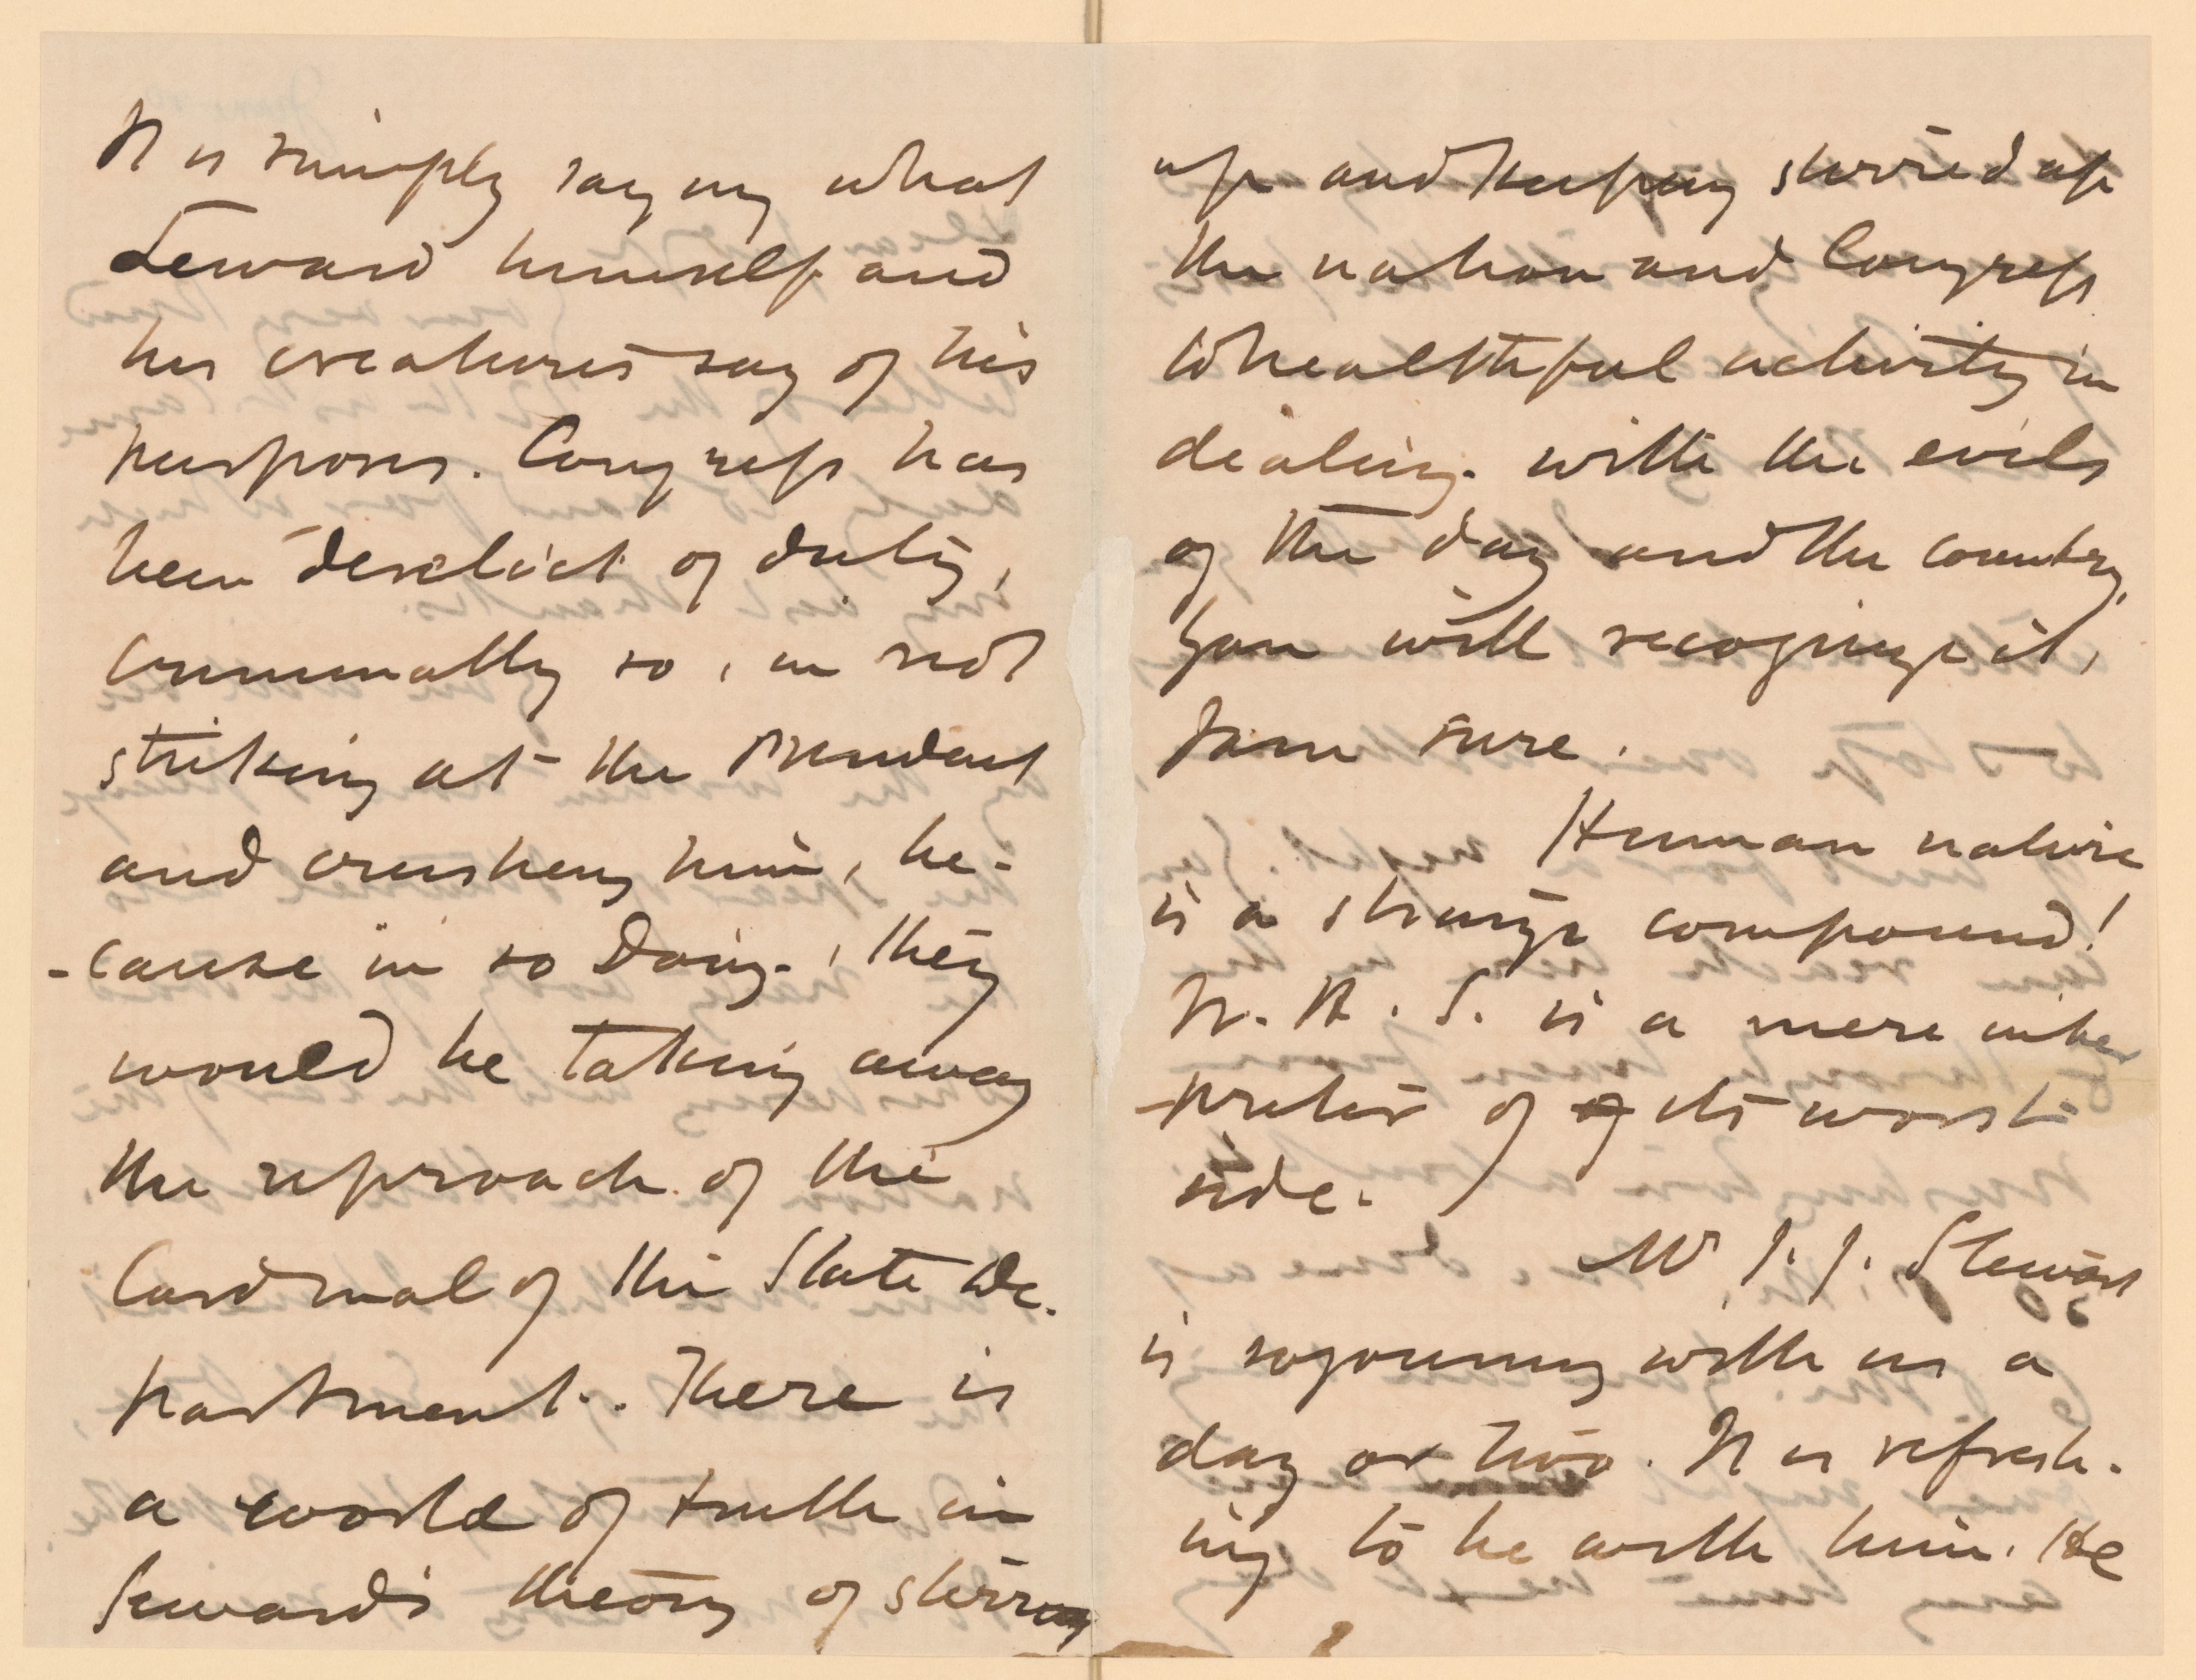 It is simply saying what
Seward himself and
his creatures say of his
purposes. Congress has
been derelict of duty,
criminally so, in not
striking at the President
and crushing him, be-
-cause in so doing, they
would be taking away
the reproach of the
Cardinal of the State De-
partment. There is
a world of truth in
Seward's theory of stirring
up and keeping stirred up
the nation and Congress
to healthful activity in
dealing with the evils
of the day and the country.
You will recognize it,
I am sure.
Human nature
is a strange compound!
W. H. S. is a mere inter
-preter of of its worst
side.
Mr J. J. Stewart
is sojourning with us a
day or two. It is refresh-
ing to be with him. He